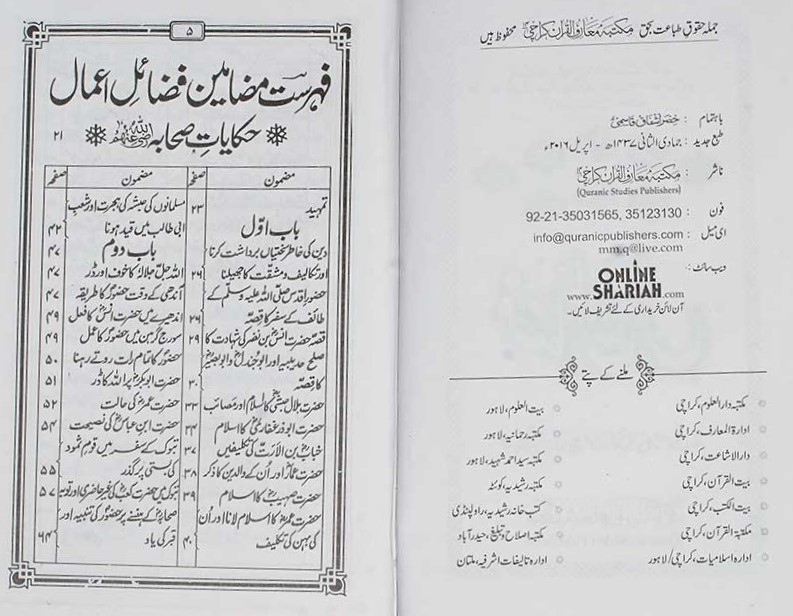 جملہ حقوق طباعت بحق مکتبہ معارف القرآن کراچی محفوظ ہیں
باہتمام : خضر اشفاق قاسمی
طبع جدید : جمادی الثانی ۱۴۳۷ھ - اپریل ۲۰۱۶ء
ناشر : مکتبہ معارف القرآن کراچی
(Quranic Studies Publishers)
فون : 92-21-35031565, 35123130
ای میل : info@quranicpublishers.com
mm.q@live.com
ویب سائٹ :
ONLINE
SHARIAH
www.SHARIAH.com
آن لائن خریداری کے لئے تشریف لائیں۔
ملنے کے پتے
مکتبہ دارالعلوم، کراچی
ادارۃ المعارف، کراچی
دارالاشاعت، کراچی
بیت القرآن، کراچی
بیت الکتب، کراچی
مکتبۃ القرآن، کراچی
ادارہ اسلامیات، کراچی/لاہور
بیت العلوم، لاہور
مکتبہ رحمانیہ، لاہور
مکتبہ سید احمد شہید، لاہور
مکتبہ رشیدیہ، کوئٹہ
کتب خانہ رشیدیہ، راولپنڈی
مکتبہ اصلاح و تبلیغ، حیدرآباد
ادارہ تالیفات اشرفیہ، ملتان
۵
فہرست مضامین فضائل اعمال
حکایات صحابہ رضی اللہ عنہم ۲۱
مضمون صفحہ
تمہید ۲۳
باب اوّل
دین کی خاطر سختیاں برداشت کرنا
اور تکالیف و مشقت کا جھیلنا ۲۶
حضور اقدس صلی اللہ علیہ وسلم کے
طائف کے سفر کا قصہ ۲۶
قصہ حضرت انس بن نضر کی شہادت کا ۲۹
صلح حدیبیہ اور ابو جندل اور ابو بصیر
کا قصہ ۳۰
حضرت بلال حبشی کا اسلام اور مصائب ۳۳
حضرت ابوذر غفاری کا اسلام ۳۴
خباب بن الارت کی تکلیفیں ۳۷
حضرت عمار اور ان کے والدین کا ذکر ۳۸
حضرت صہیب کا اسلام ۳۹
حضرت عمر کا اسلام لانا اور ان
کی بہن کی تکلیف ۴۰
مضمون صفحہ
مسلمانوں کی حبشہ کی ہجرت اور شعب
ابی طالب میں قید ہونا ۴۲
باب دوم ۴۷
اللہ جل جلالہ کا خوف اور ڈر ۴۷
آندھی کے وقت حضور کا طریقہ ۴۷
اندھیرے میں حضرت انس کا فعل ۴۹
سورج گرہن میں حضور کا عمل ۴۹
حضور کا تمام رات روتے رہنا ۵۰
حضرت ابوبکر پر اللہ کا ڈر ۵۱
حضرت عمر کی حالت ۵۲
حضرت ابن عباس کی نصیحت ۵۴
تبوک کے سفر میں قوم ثمود
کی بستی پر گذر ۵۵
تبوک میں حضرت کعب کی غیر حاضری اور توبہ ۵۷
صحابہ کے ہنسنے پر حضور کی تنبیہ اور
قبر کی یاد ۶۴